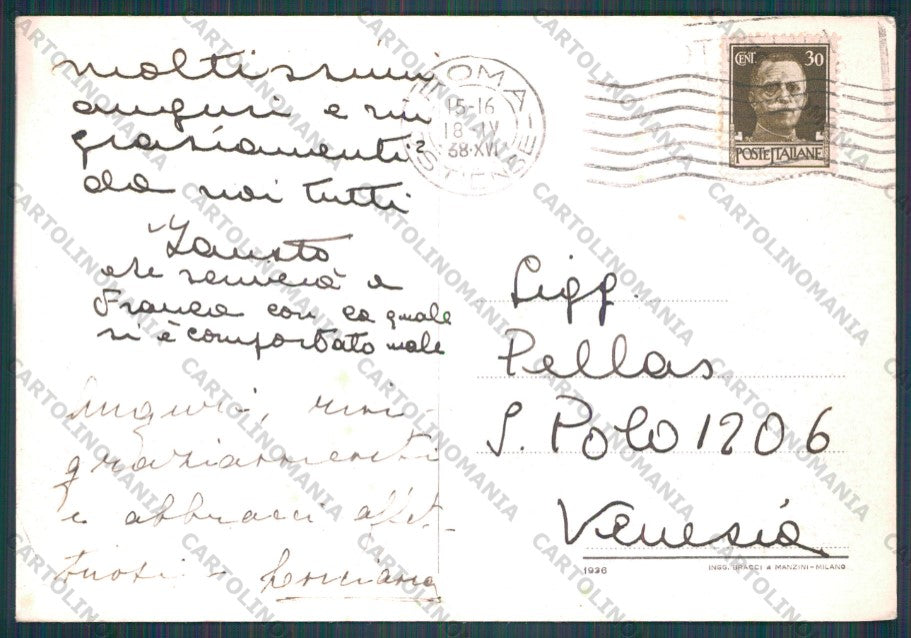 moltissimi
auguri e rin
graziamenti
da noi tutti
Fausto
che scriverà a
Franca con la quale
si è comportato male
Auguri, rin-
graziamenti
e abbracci affet-
tuosi - Luciana
ROMA
OSTIENSE
15-16
18·IV
38·XVI
2
CENT. 30
POSTE ITALIANE
Sigg.
Pellas
S. Polo 1206
Venezia
1936
INGG. BRACCI & MANZINI-MILANO
CARTOLINOMANIA